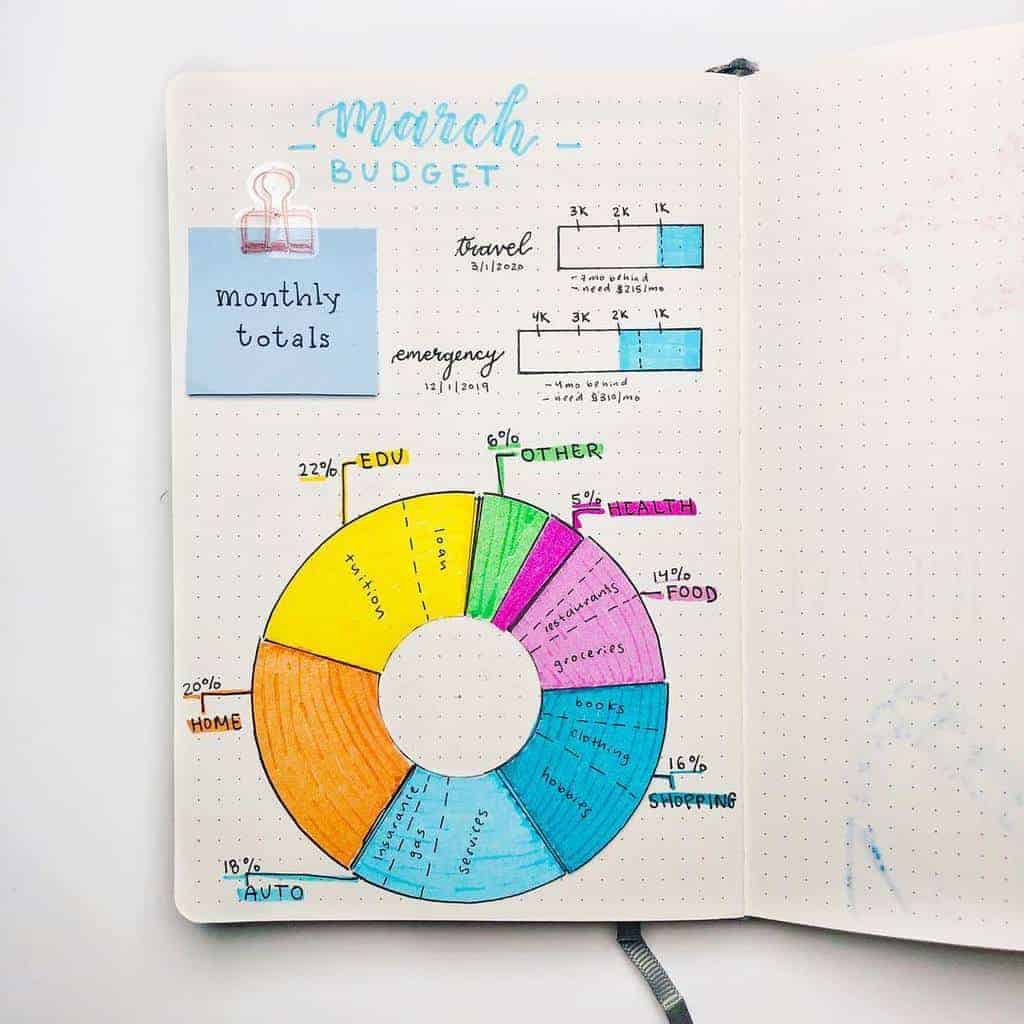 march
BUDGET
monthly
totals
3K 2K 1K
travel
3/1/2020
- 7mo behind
- need $215/mo
4K 3K 2K 1K
emergency
12/1/2019
- 4mo behind
- need $310/mo
22% EDU
6% OTHER
5% HEALTH
14% FOOD
16% SHOPPING
18% AUTO
20% HOME
tuition
loan
restaurants
groceries
books
clothing
hobbies
services
gas
insurance